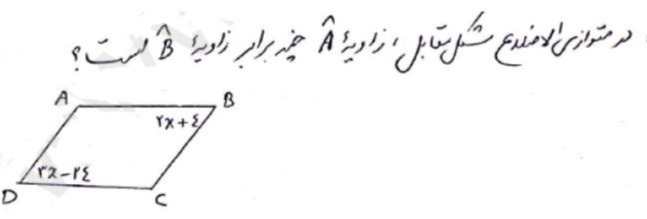 در متوازی الاضلاع شکل مقابل، زاویهٔ Â چند برابر زاویهٔ B̂ است؟
A B
۲x+٤
۳x-۲٤
D C